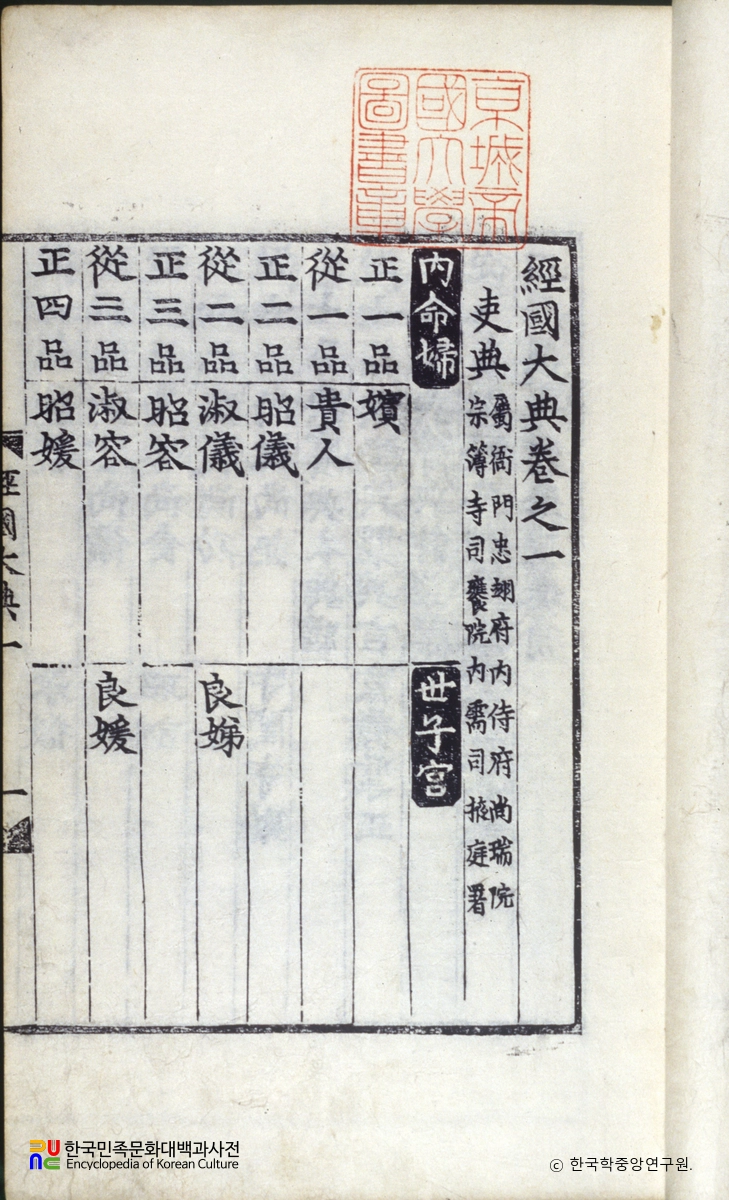 京城帝
國大學
圖書章
經國大典卷之一
吏典
屬衙門忠翊府內侍府尚瑞院
宗簿寺司饔院內需司掖庭署
內命婦 世子宮
正一品 嬪
從一品 貴人
正二品 昭儀
從二品 淑儀 良娣
正三品 昭容
從三品 淑容 良媛
正四品 昭媛
經國大典一 一
한국민족문화대백과사전
Encyclopedia of Korean Culture
ⓒ 한국학중앙연구원.